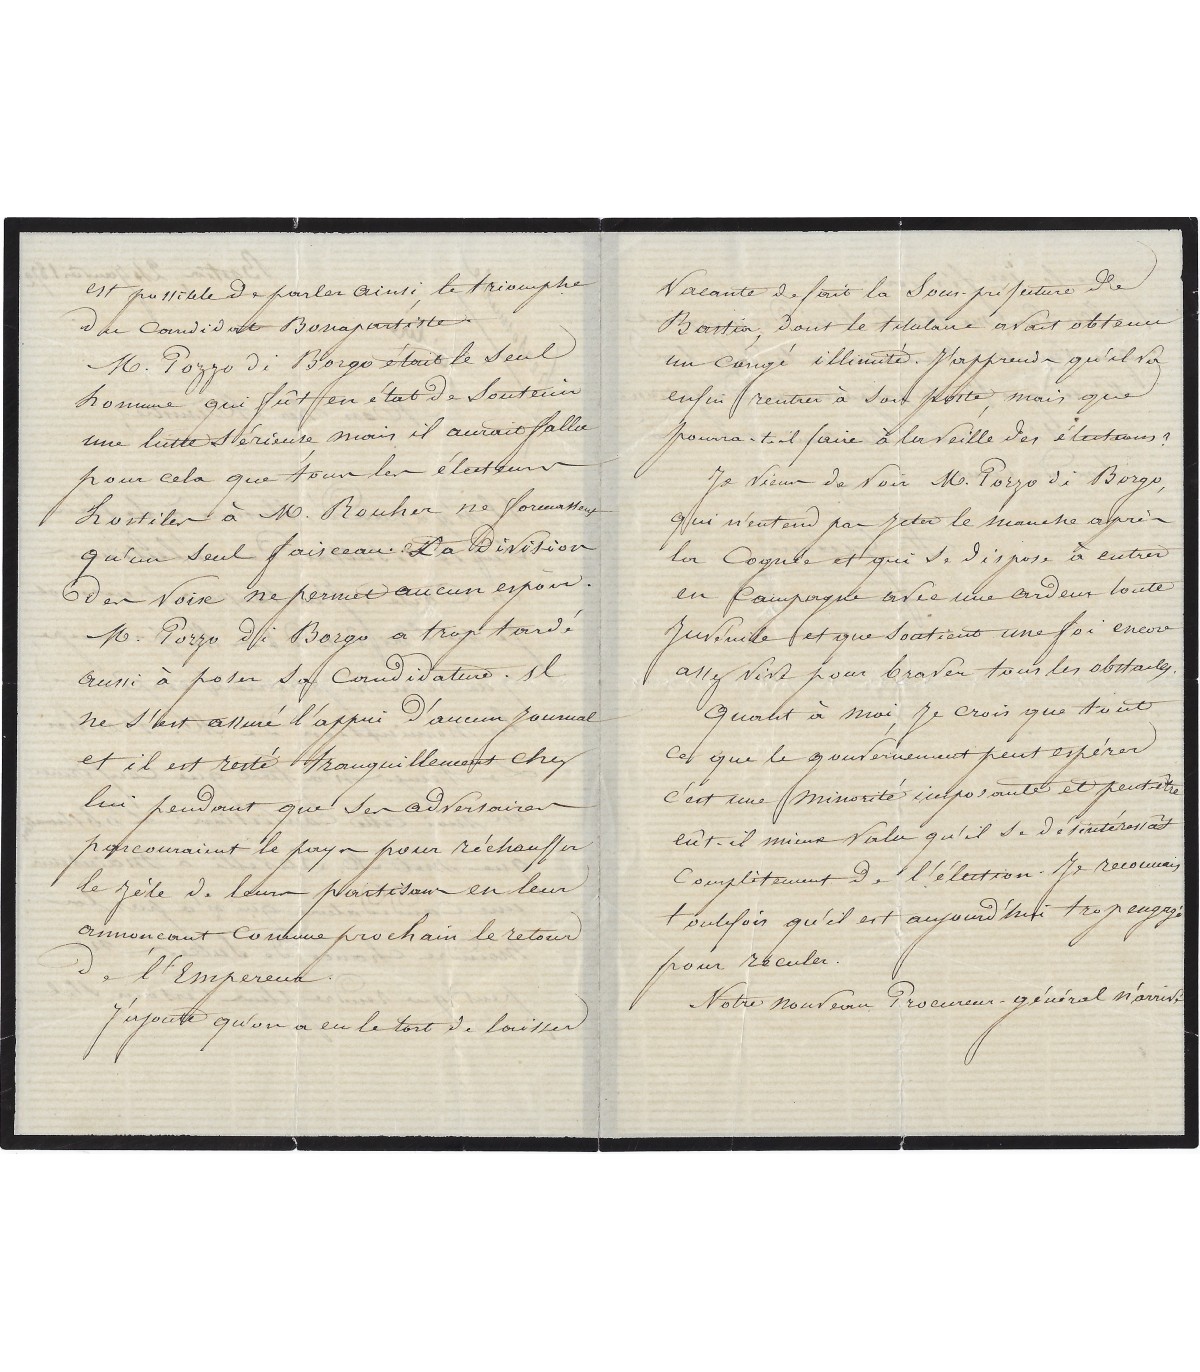 est possible de parler ainsi, le triomphe
du candidat Bonapartiste.
M. Pozzo di Borgo était le seul
homme qui fût en état de soutenir
une lutte sérieuse mais il aurait fallu
pour cela que tous les électeurs
hostiles à M. Rouher ne formassent
qu'un seul faisceau. La division
des voix ne permet aucun espoir.
M. Pozzo di Borgo a trop tardé
aussi à poser sa candidature. Il
ne s'est assuré l'appui d'aucun journal
et il est resté tranquillement chez
lui pendant que ses adversaires
parcouraient le pays pour réchauffer
le zèle de leurs partisans en leur
annoncant comme prochain le retour
de l'Empereur.
J'ajoute qu'on a eu le tort de laisser
vacante de fait la Sous-préfecture de
Bastia, dont le titulaire avait obtenu
un congé illimité. J'apprends qu'il va
enfin rentrer à son poste, mais que
pourra-t-il faire à la veille des élections?
Je viens de voir M. Pozzo di Borgo,
qui n'entend pas jeter le manche après
la cognée et qui se dispose à entrer
en campagne avec une ardeur toute
juvenile et que soutient une foi encore
assez vive pour braver tous les obstacles.
Quant à moi, je crois que tout
ce que le gouvernement peut espérer
c'est une minorité imposante et peut être
eût-il mieux valu qu'il se désintéressât
complètement de l'élection. Je reconnais
toutefois qu'il est aujourd'hui trop engagé
pour reculer.
Notre nouveau Procureur-général n'arrive